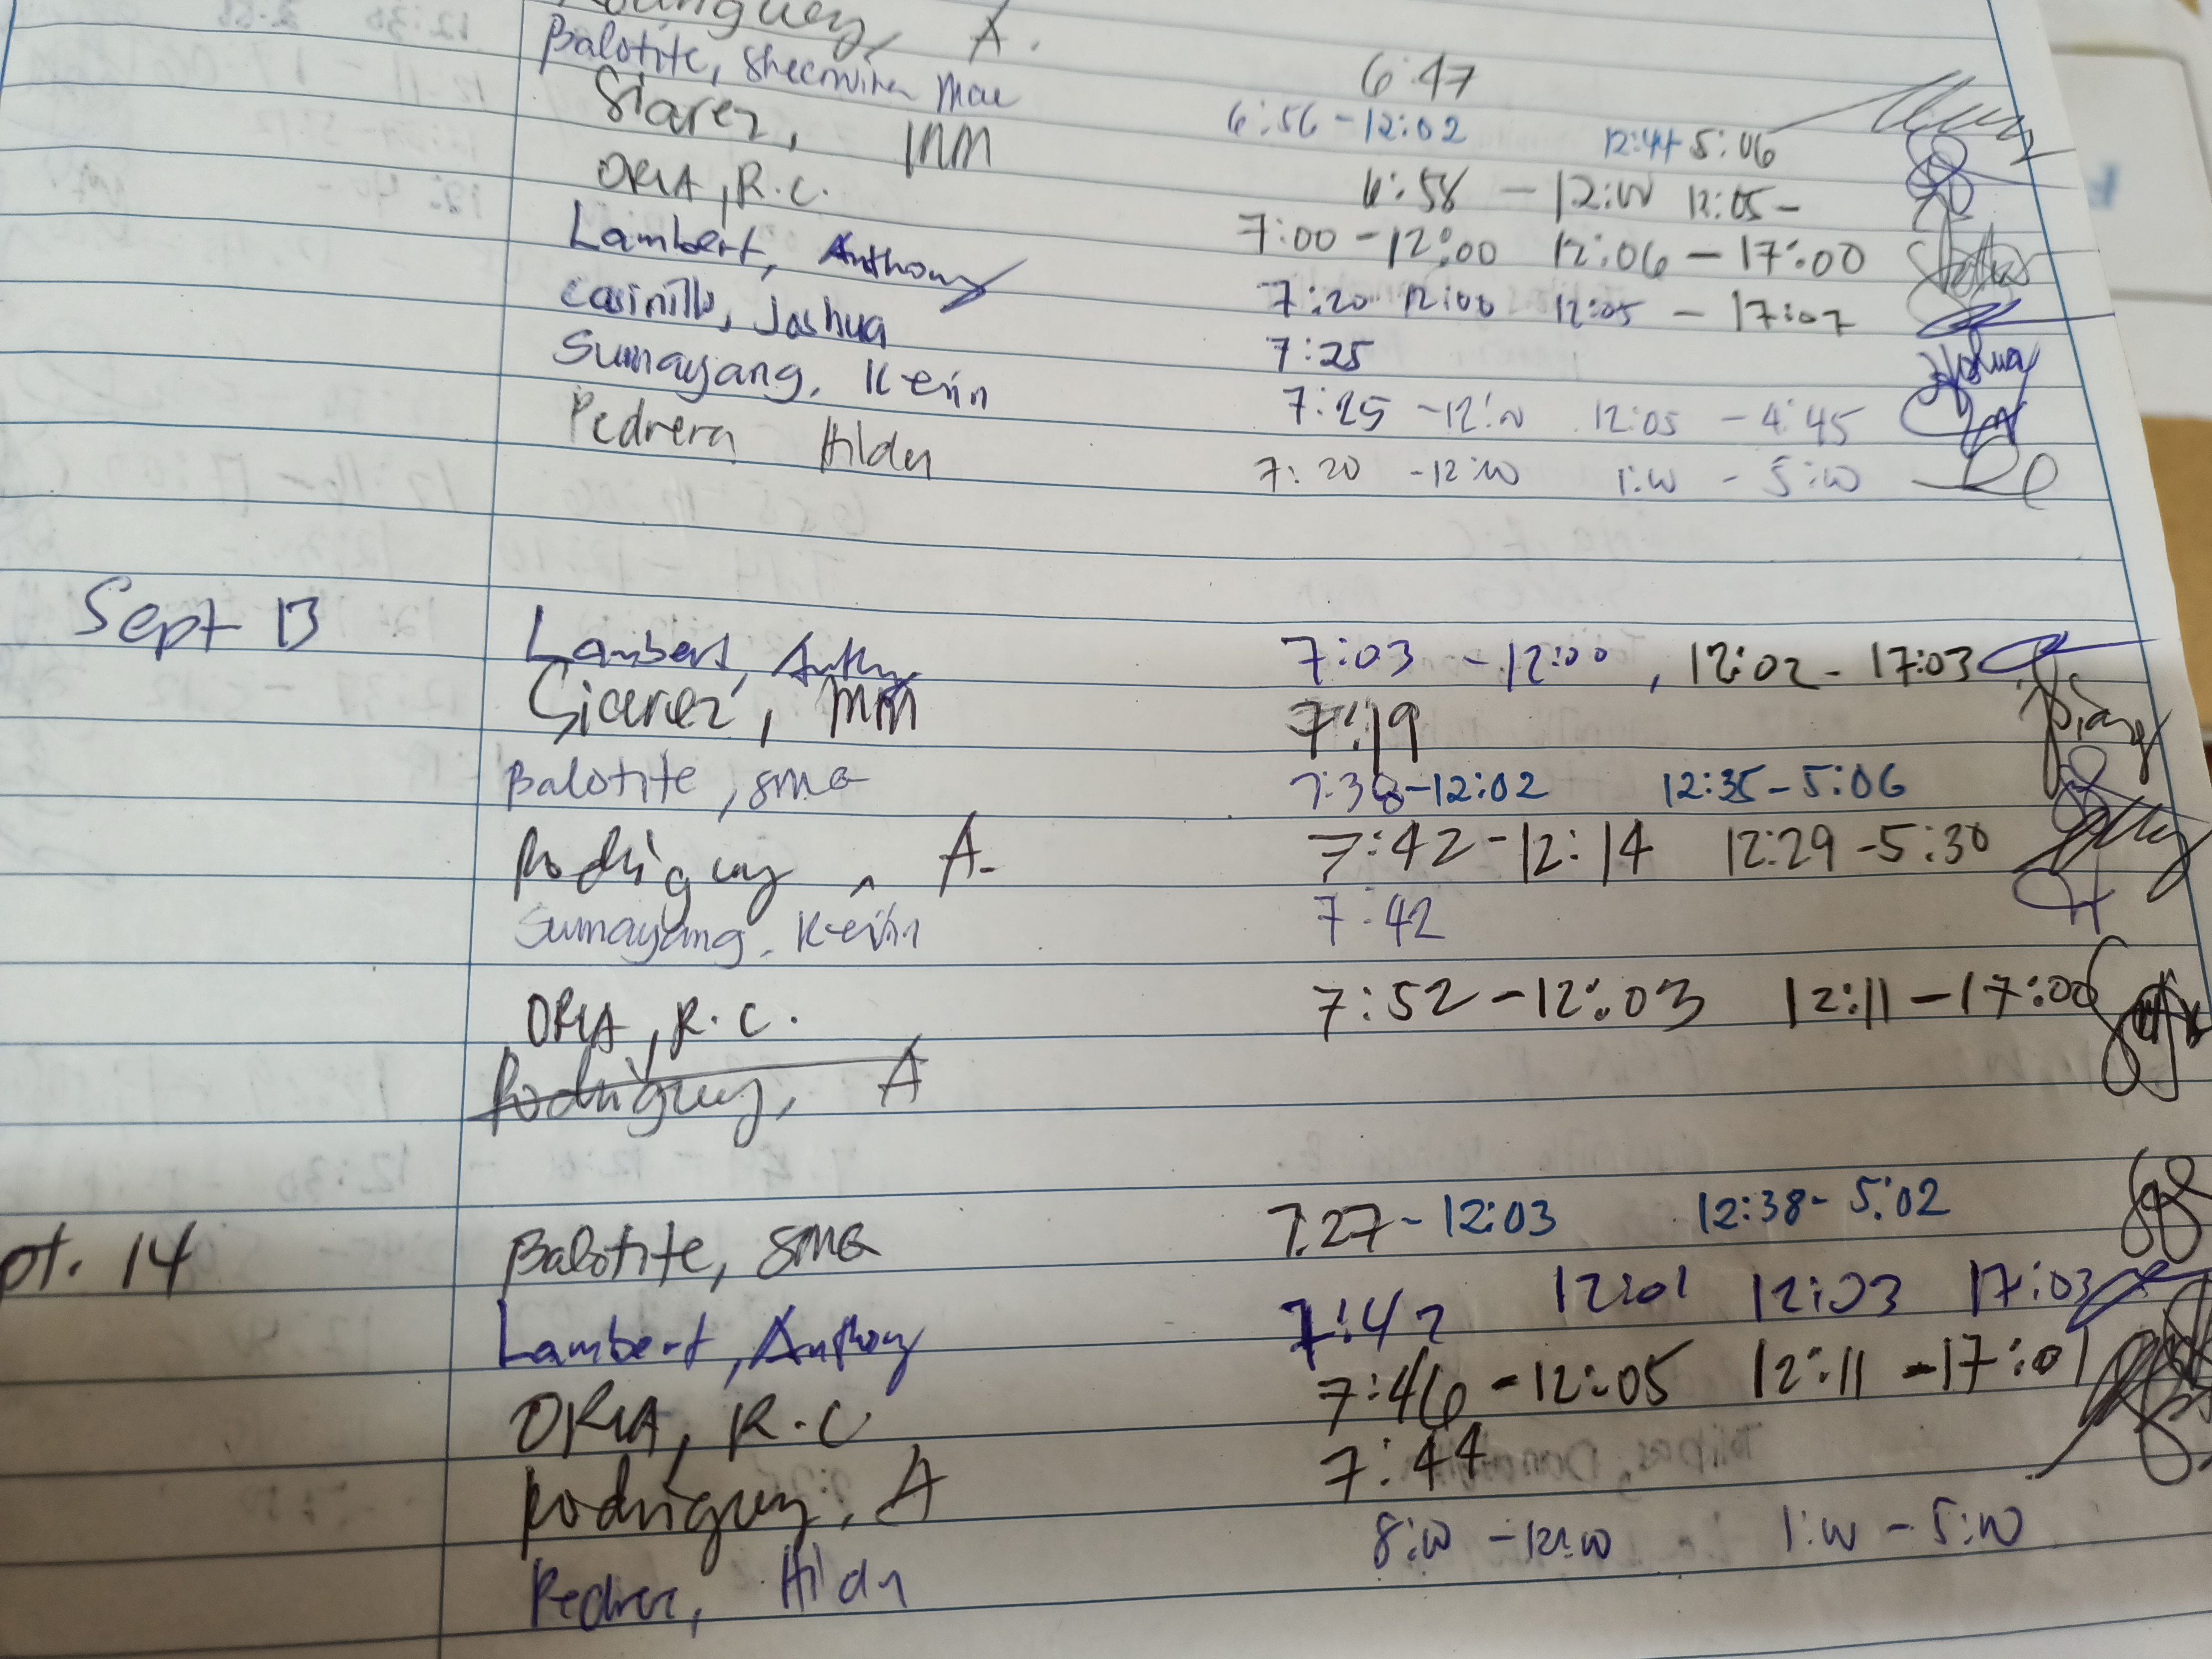 A. 6:47
Balotite, Mae 6:56-12:02 12:44 5:06
Siarez, MM 6:58 - 12:00 12:05-
ORIA, R.C. 7:00-12:00 12:06-17:00
Lambert, Anthony 7:20 12:00 12:05 - 17:07
Casinillo, Joshua 7:25
Sumayang, Kevin 7:25 -12:00 12:05 - 4:45
Pedrera Hilda 7:20 -12:00 1:00 - 5:00
Sept 13 Lambert, Anthony 7:03 - 12:00, 12:02 - 17:03
Siarez, MM 7:19
Balotite, SMG 7:38-12:02 12:35-5:06
Rodriguez, A. 7:42-12:14 12:29-5:30
Sumayang, Kevin 7:42
ORIA, R.C. 7:52-12:03 12:11-17:00
Rodriguez, A
pt. 14 Balotite, SMG 7:27-12:03 12:38-5:02
Lambert, Anthony 7:42 12:01 12:03 17:03
ORIA, R.C 7:46-12:05 12:11-17:01
Rodriguez, A 7:44
Hilda 8:00 -12:00 1:00 - 5:00